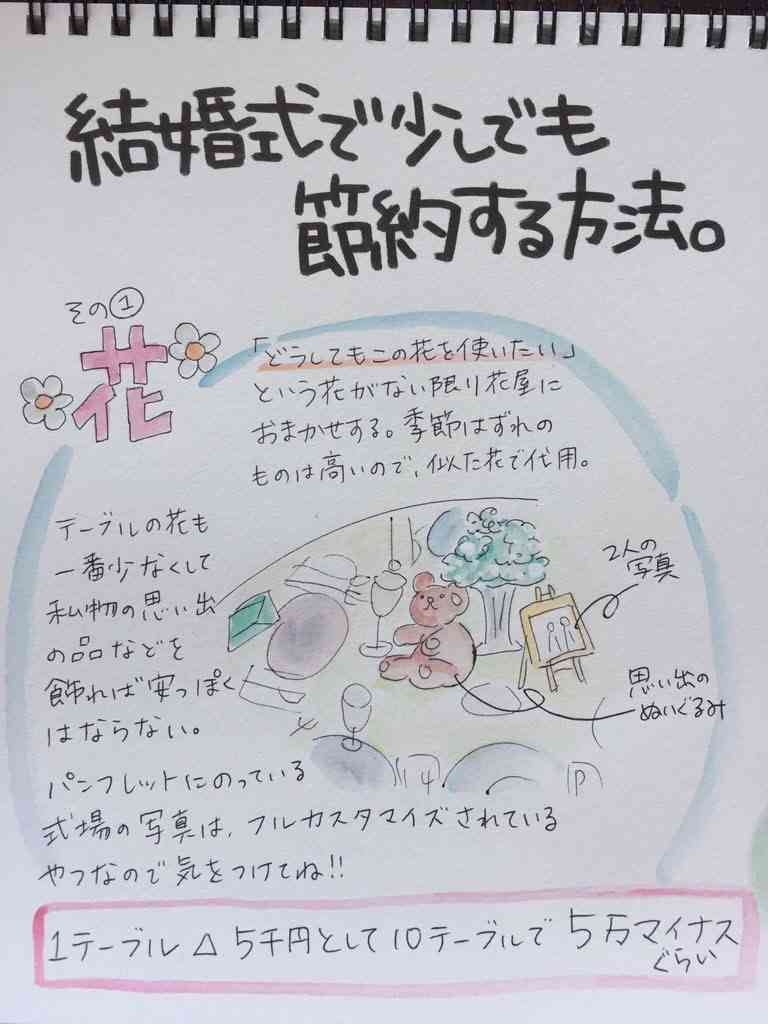 結婚式で少しでも
節約する方法。
その①
花
「どうしてもこの花を使いたい」
という花がない限り花屋に
おまかせする。季節はずれの
ものは高いので、似た花で代用。
テーブルの花も
一番少なくして
私物の思い出
の品などを
飾れば安っぽく
はならない。
2人の
写真
思い出の
ぬいぐるみ
パンフレットにのっている
式場の写真は、フルカスタマイズされている
やつなので気をつけてね!!
1テーブル △ 5千円として10テーブルで 5万マイナス
ぐらい